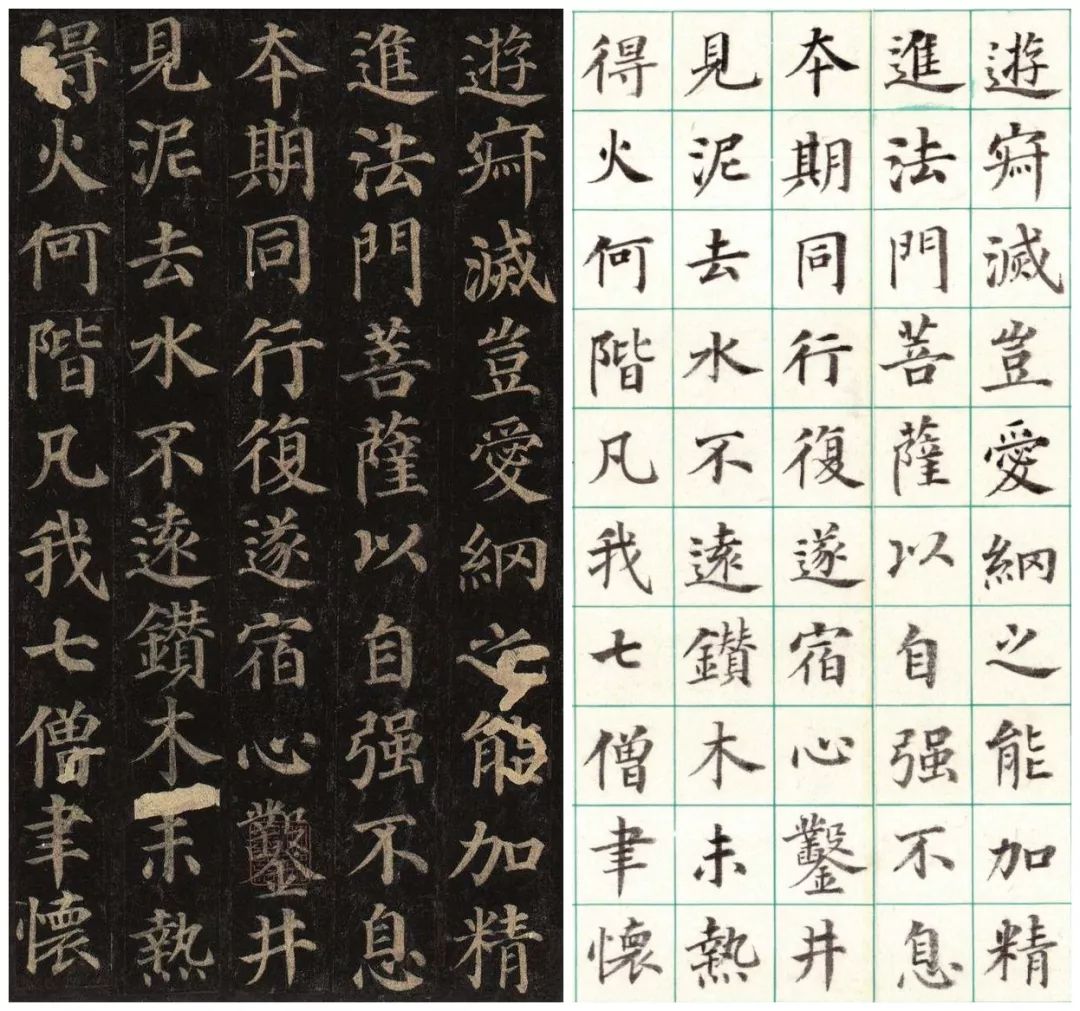 遊寂滅豈愛網之能加精
進法門菩薩以自强不息
本期同行復遂宿心鑿井
見泥去水不遠鑽木未熱
得火何階凡我七僧聿懷
遊寂滅豈愛網之能加精
進法門菩薩以自强不息
本期同行復遂宿心鑿井
見泥去水不遠鑽木未熱
得火何階凡我七僧聿懷